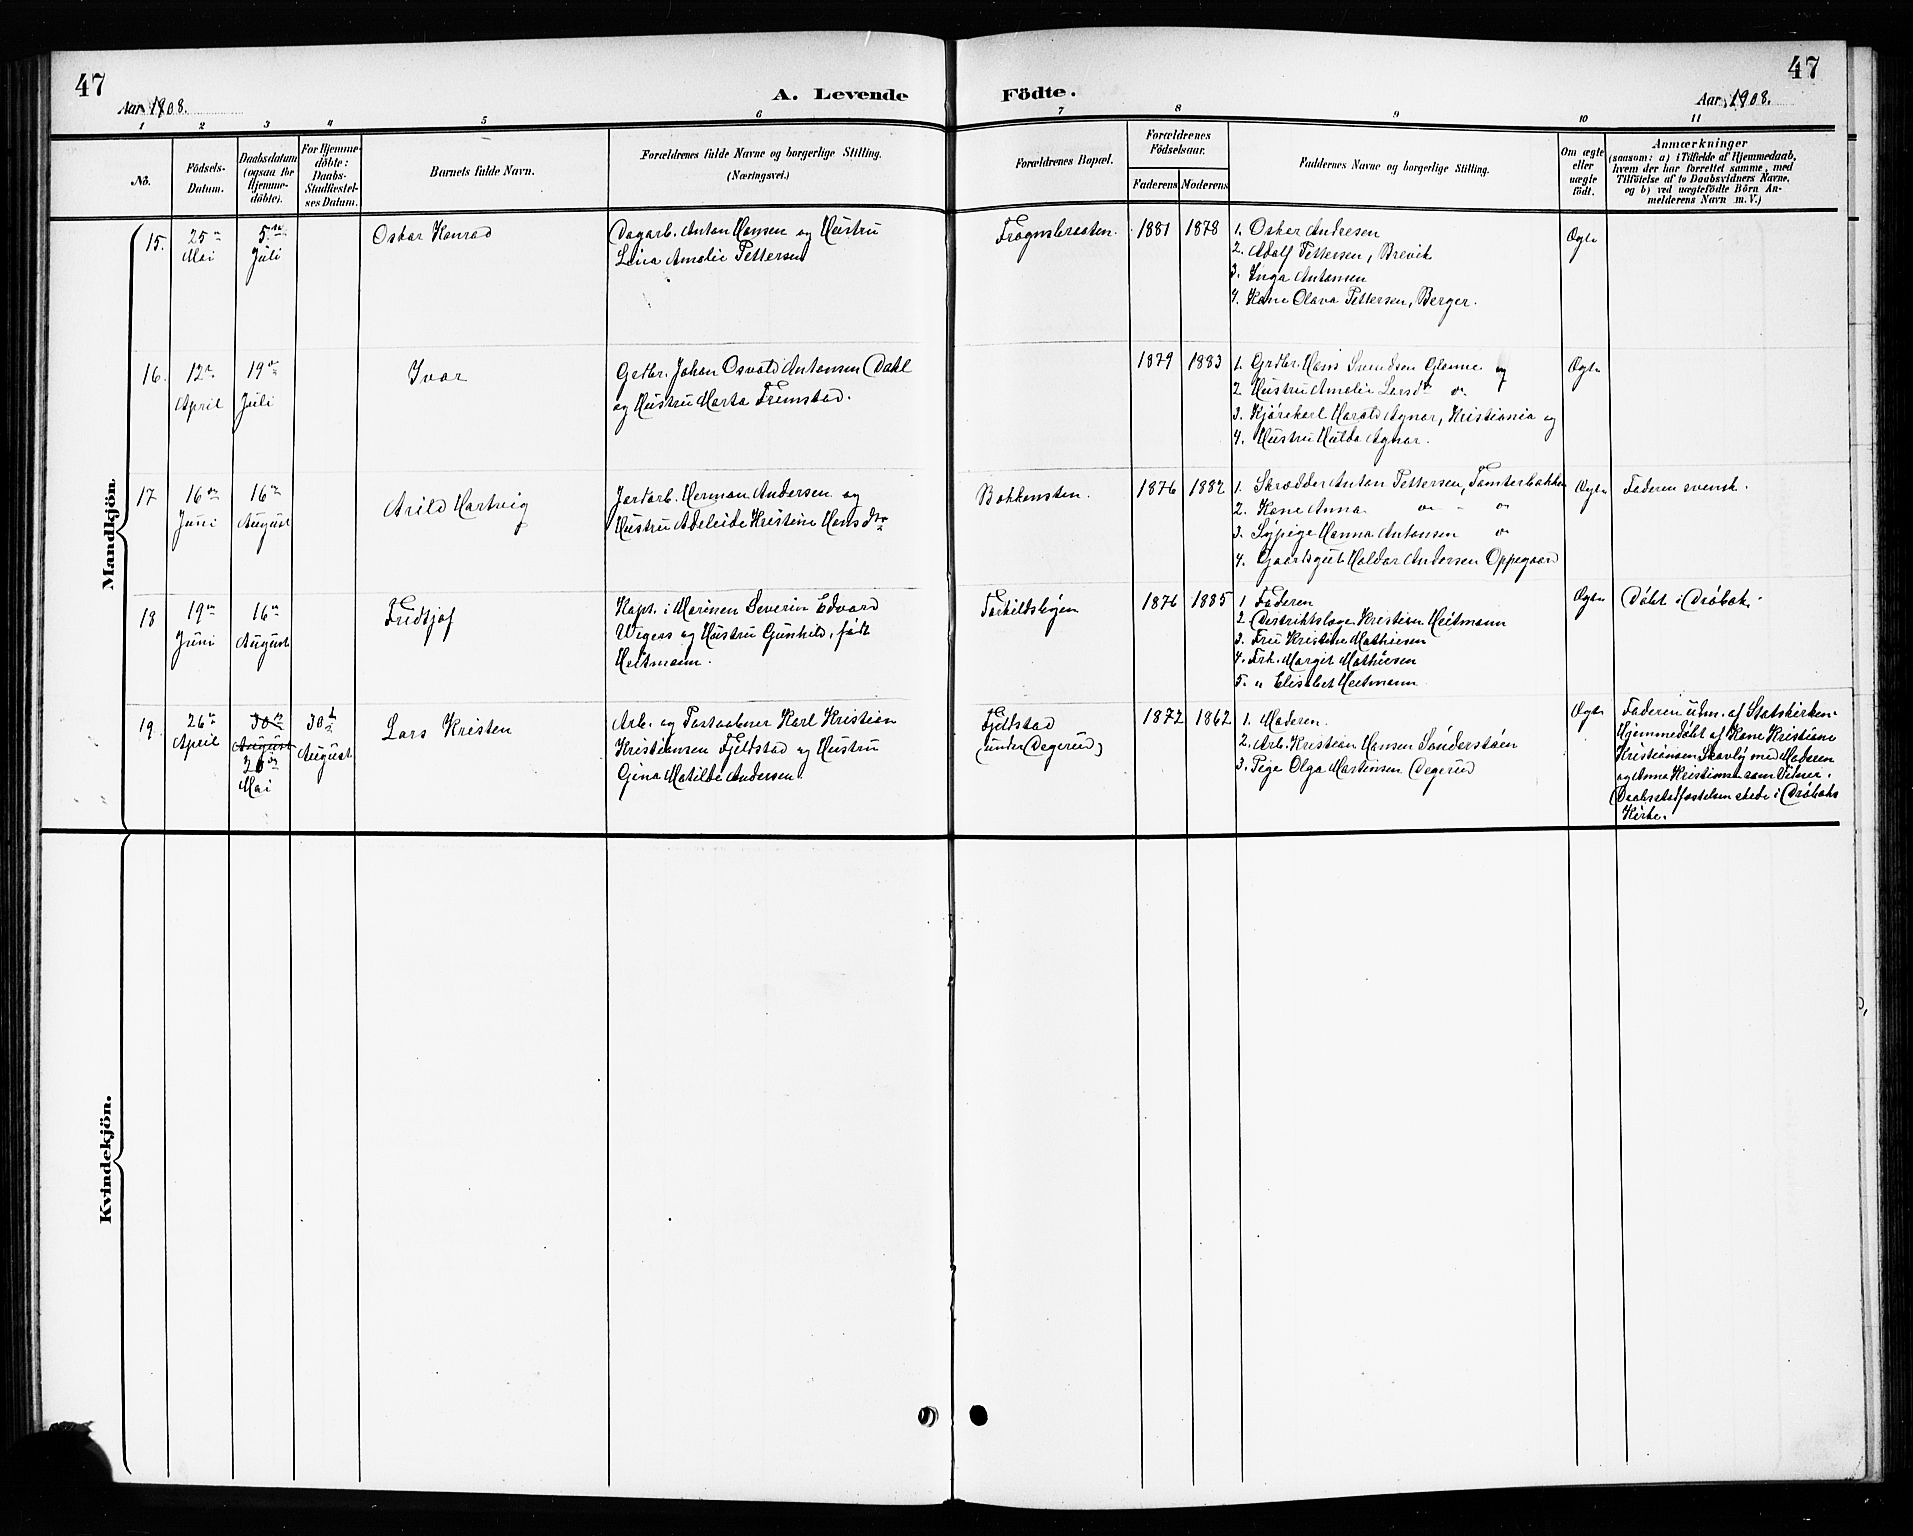 47
Aar 1908.
A. Levende Födte.
47
Aar 1908.
1 2 3 4 5 6 7 8 9 10 11
No.
Födsels-Datum.
Daabsdatum (ogsaa for Hjemme-döbte).
For Hjemme-döbte: Daabs-Stadfæstel-ses Datum.
Barnets fulde Navn.
Forældrenes fulde Navne og borgerlige Stilling.
(Næringsvei.)
Forældrenes Bopæl.
Forældrenes Födselsaar.
Faderens
Moderens
Faddernes Navne og borgerlige Stilling.
Om ægte eller uægte født.
Anmærkninger
(saasom: a) i Tilfælde af Hjemmedaab,
hvem der har forrettet samme, med
Tilföielse af to Daabsvidners Navne,
og b) ved uægtefödte Börn An-
melderens Navn m. V.)
Mandkjön.
15. 25de Mai
5te Juli
Oskar Konrad
Dagarb. Anton Hansen og Hustru
Lina Amalie Pettersen
Frognsbraaten.
1881 1878
1. Oskar Andresen
2. Adolf Pettersen, Brevik
3. Inga Antonsen
4. Kone Olava Pettersen, Berger.
Ægte
16. 12te April
19de Juli
Ivar
Grdbr. Johan Osvald Antonsen Dahl
og Hustru Marta Fremstad.
1879 1883
1. Grdbr. Hans Svendsen Glenne og
2. Hustru Amalie Larsdtr do
3. Kjørekarl Harald Agnar, Kristiania og
4. Hustru Hulda Agnar.
Ægte
17 16de Juni
16de August
Arild Hartvig
Jordarb. Herman Andersen og
Hustru Adeleide Kristine Hansdtr
Bakkensten.
1876 1882
1. Skrædder Anton Pettersen, Tomterbakken
2. Kone Anna do - do
3. Sypige Hanna Antonsen do
4. Gaardsgut Haldor Andersen Oppegaard
Ægte
Faderen svensk.
18 19de Juni
16de August
Fridtjof
Kapt. i Marinen Severin Edvard
Wegers og Hustru Gunhild, født
Heitmann.
1876 1885
1 Faderen
2 Distriktslæge Kristian Heitmann
3. Fru Kristine Mathiesen
4. Frk. Margit Mathiesen
5. " Elisabet Heitmann
Ægte
Døbt i Drøbak.
19. 26de April
30te August
20de Mai
30te August
Lars Kristen
Arb. og Postaabner Karl Kristian
Kristiansen Fjeldstad og Hustru
Gina Matilde Andersen
Fjeldstad
(under Degerud)
1872 1862
1. Moderen.
2. Arb. Kristian Hansen Sønderstøen
3. Pige Olga Martinsen Degerud
Ægte
Faderen udm. af Statskirken.
Hjemmedøbt af Kone Kristiane
Kristiansen Skavløs med Moderen
og Anna Kristians. som Vidner.
Daabsstadfæstelsen skede i Drøbaks
Kirke.
Kvindekjön.